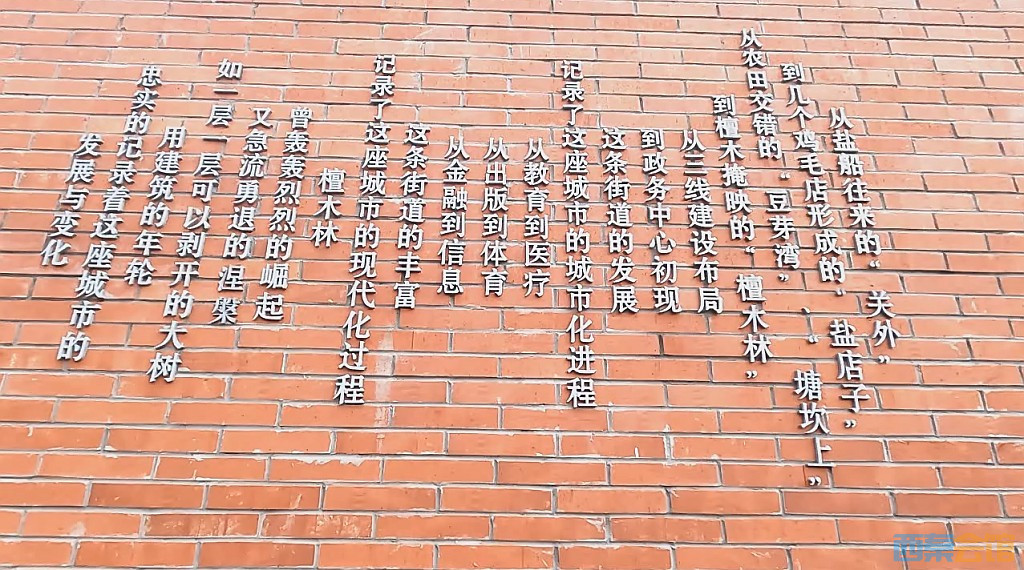 从盐船往来的“关外”
到几个鸡毛店形成的“盐店子”
从农田交错的“豆芽湾”、“塘坎上”
到檀木掩映的“檀木林”
从三线建设布局
到政务中心初现
这条街道的发展
记录了这座城市的城市化进程
从教育到医疗
从出版到体育
从金融到信息
这条街道的丰富
记录了这座城市的现代化过程
檀木林
曾轰轰烈烈的崛起
又急流勇退的涅槃
如一层一层可以剥开的大树
用建筑的年轮
忠实的记录着这座城市的
发展与变化